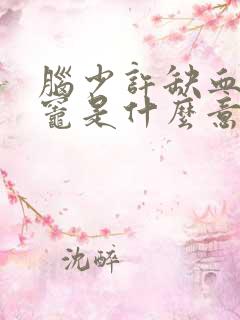 腦少許缺血
竉是什麼意
沈醉